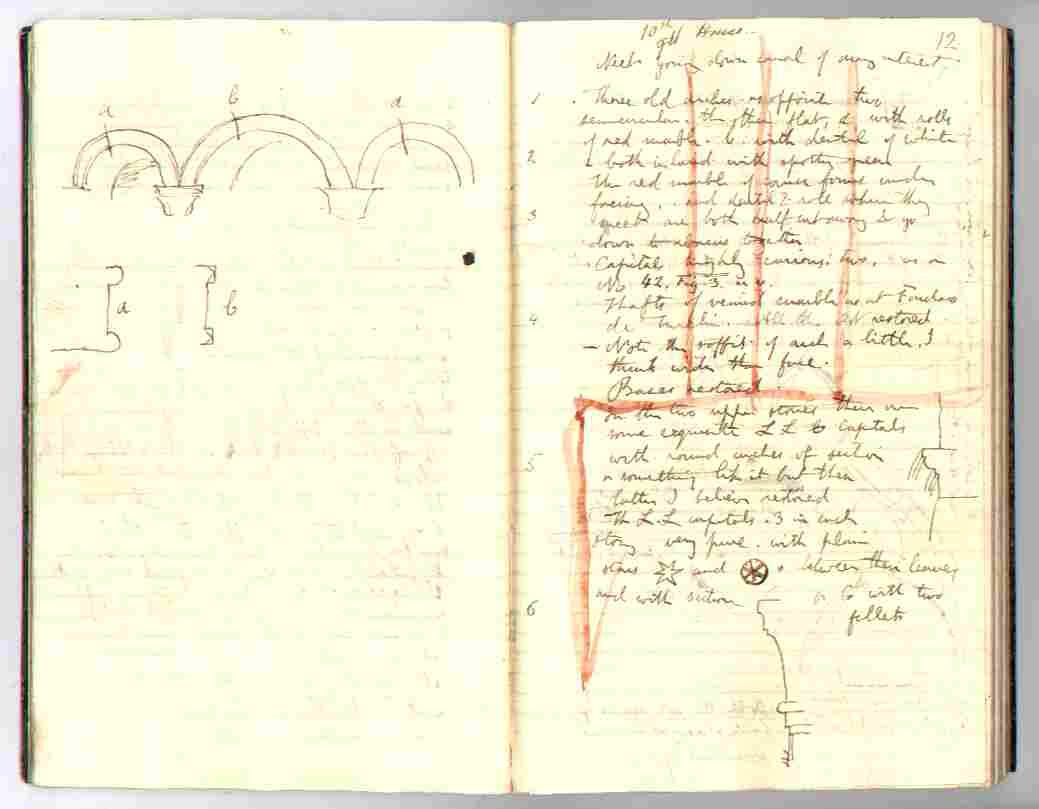 a
b
a
a
b
10th
House
12
going down canal of any interest
1
Three old arches opposite two
semicircular. the other flat, a with rolls
of red marble. b. with dentil of white
2
both inlaid with spotty green
the red marble of course forms under
facing, and dentil & roll where they
3
meet are both half way & go
down to abacus together
Capitals highly curious: two, as in
No 42. Fig. 3.
Shafts of veined marble as at Fondaco
4
de restored
— Note the soffit of arch a little, I
think wider than face.
Bases restored.
On the two upper stories there are
some exquisite L L Capitals
with round arches of section
5
or something like it but these
latter I believe restored
The L. L capitals. 3 in each
story very pure. with plain
stars and between their leaves
6
and with section or 6 with two
fillets